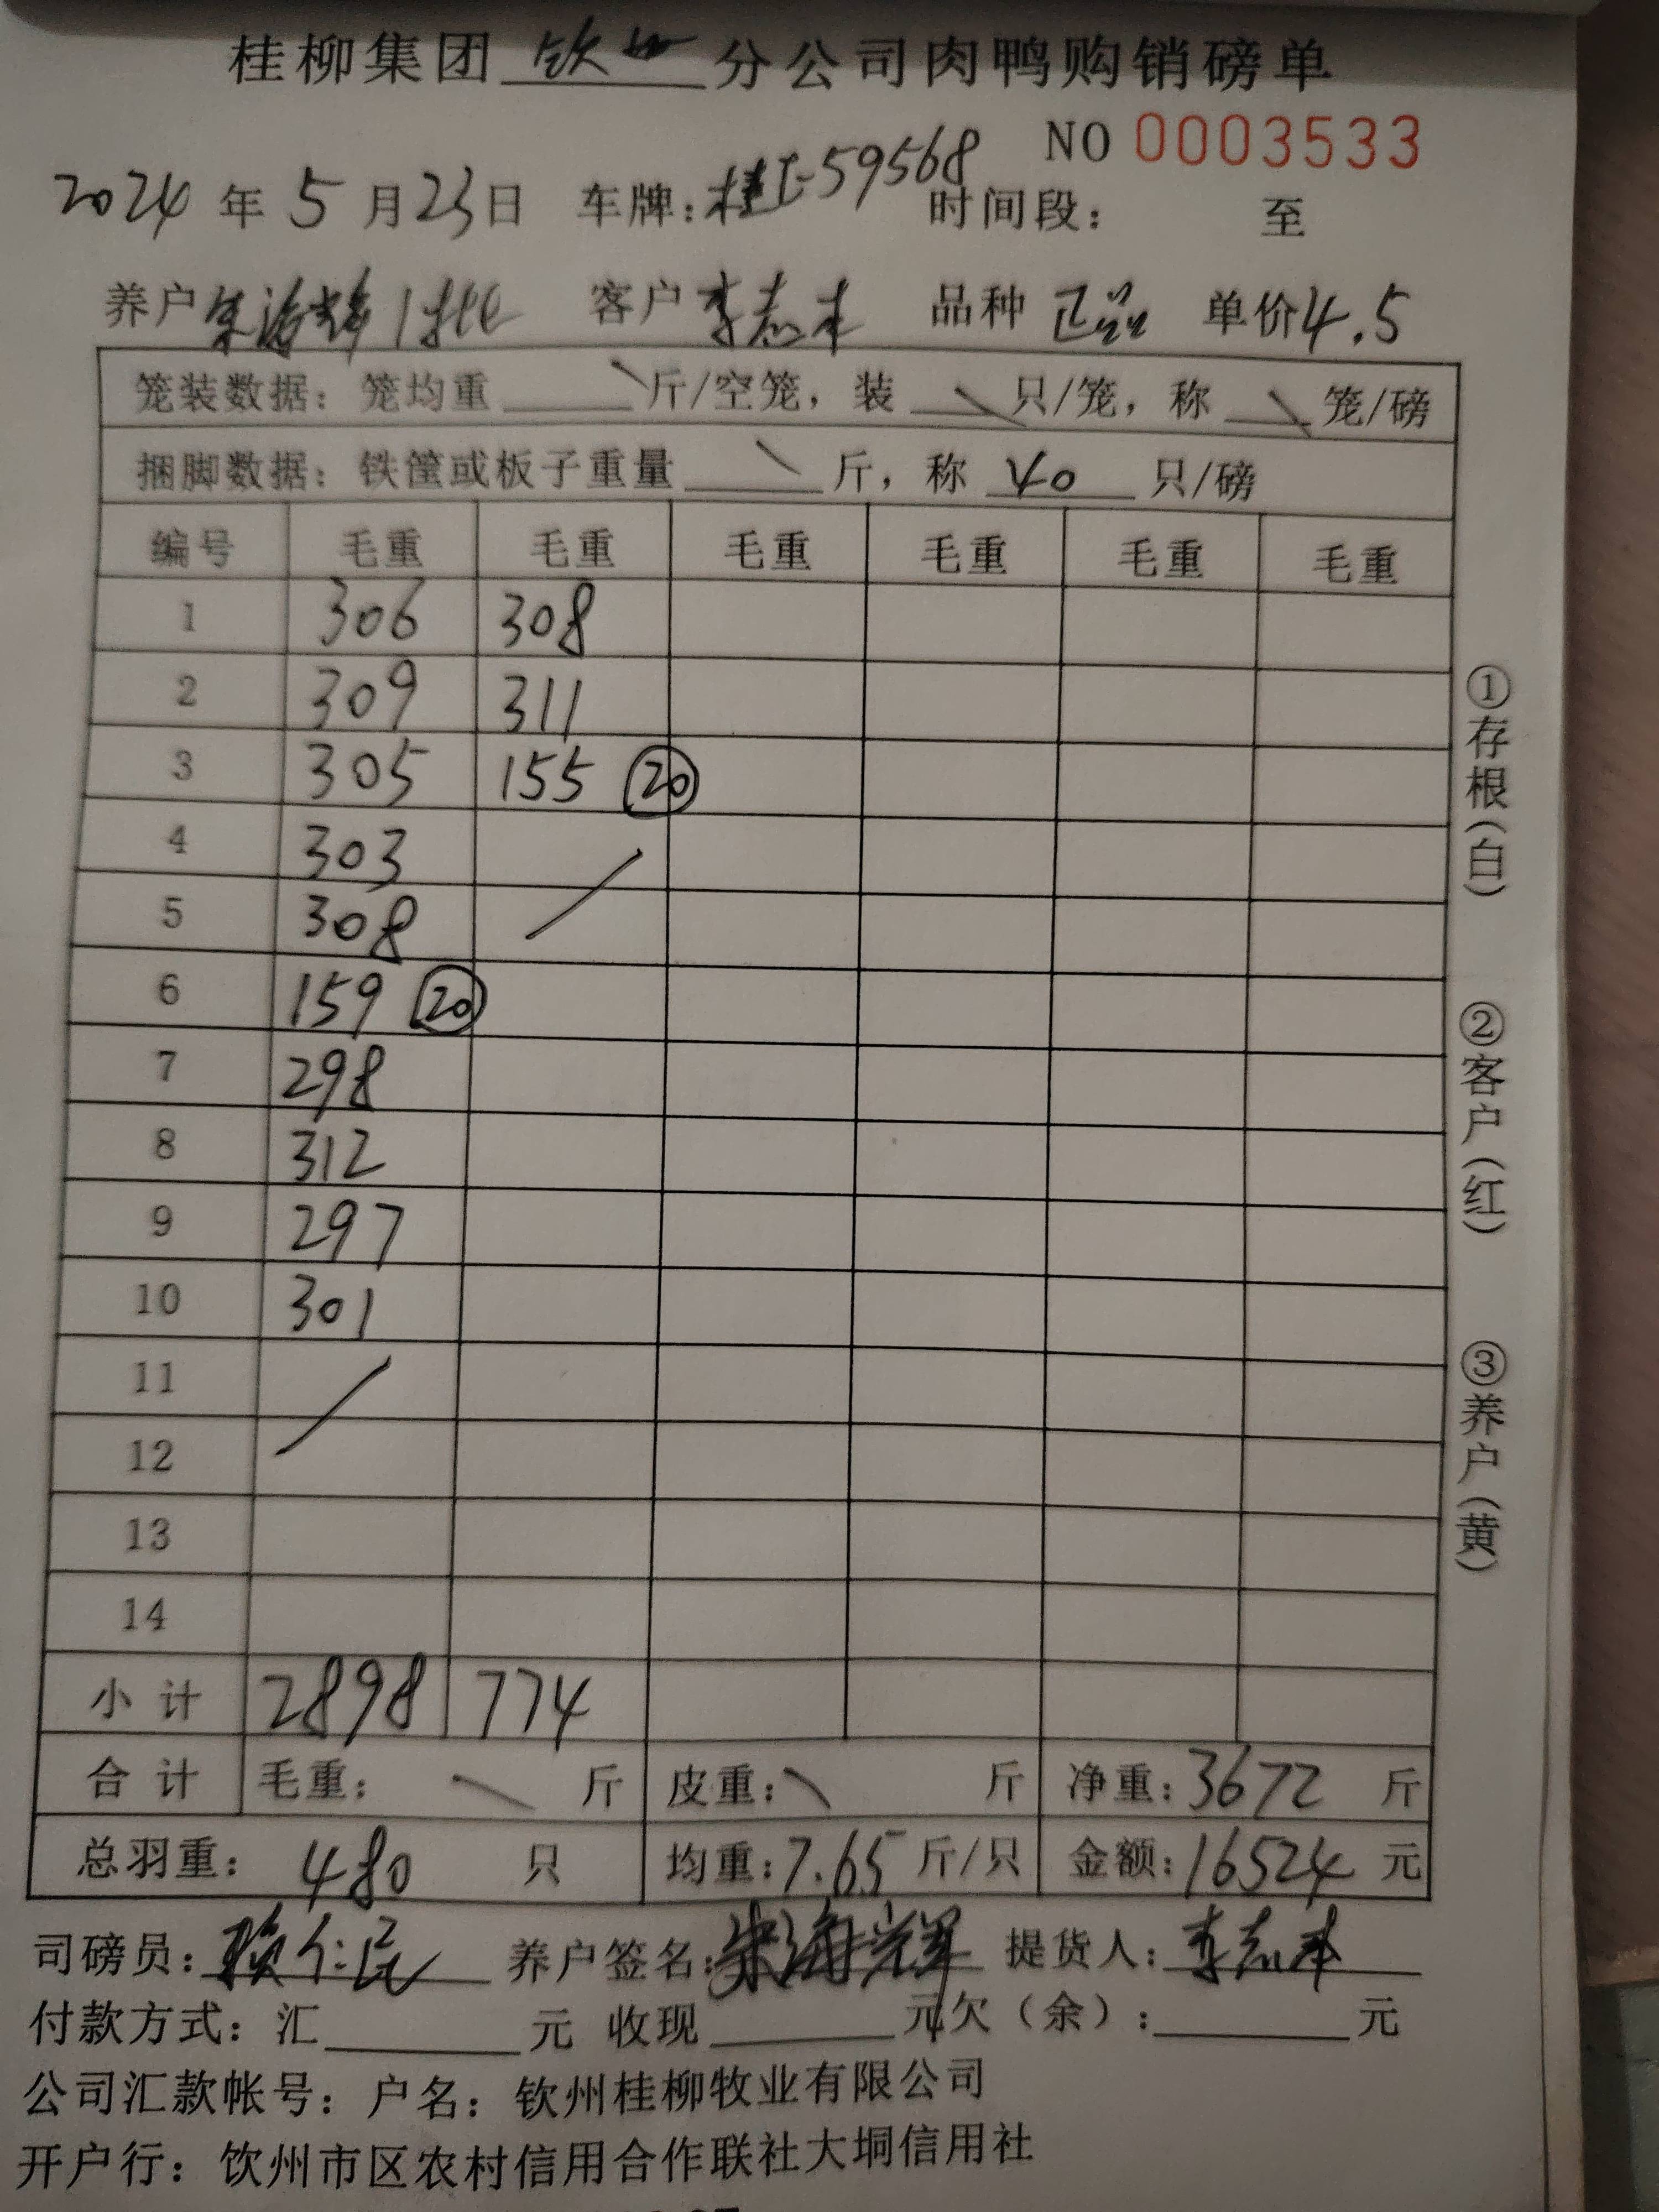 桂柳集团钦州分公司肉鸭购销磅单
NO 0003533
2024年5月23日 车牌:桂L-59568 时间段: 至
养户 1批 客户李志丰 品种 正品 单价4.5
笼装数据:笼均重 \ 斤/空笼,装 \ 只/笼,称 \ 笼/磅
捆脚数据:铁筐或板子重量 \ 斤,称 40 只/磅
编号 毛重 毛重 毛重 毛重 毛重 毛重
1 306 308
2 309 311
3 305 155 ⑳
4 303
5 308 /
6 159 ⑳
7 298
8 312
9 297
10 301
11 /
12
13
14
小计 2898 774
合计 毛重: \ 斤 皮重: \ 斤 净重:3672 斤
总羽重: 480 只 均重:7.65 斤/只 金额:16524 元
司磅员:赖仁民 养户签名:朱海辉 提货人:李志丰
付款方式:汇 元 收现 元欠(余): 元
公司汇款帐号:户名:钦州桂柳牧业有限公司
开户行:钦州市区农村信用合作联社大垌信用社
①存根(白)
②客户(红)
③养户(黄)